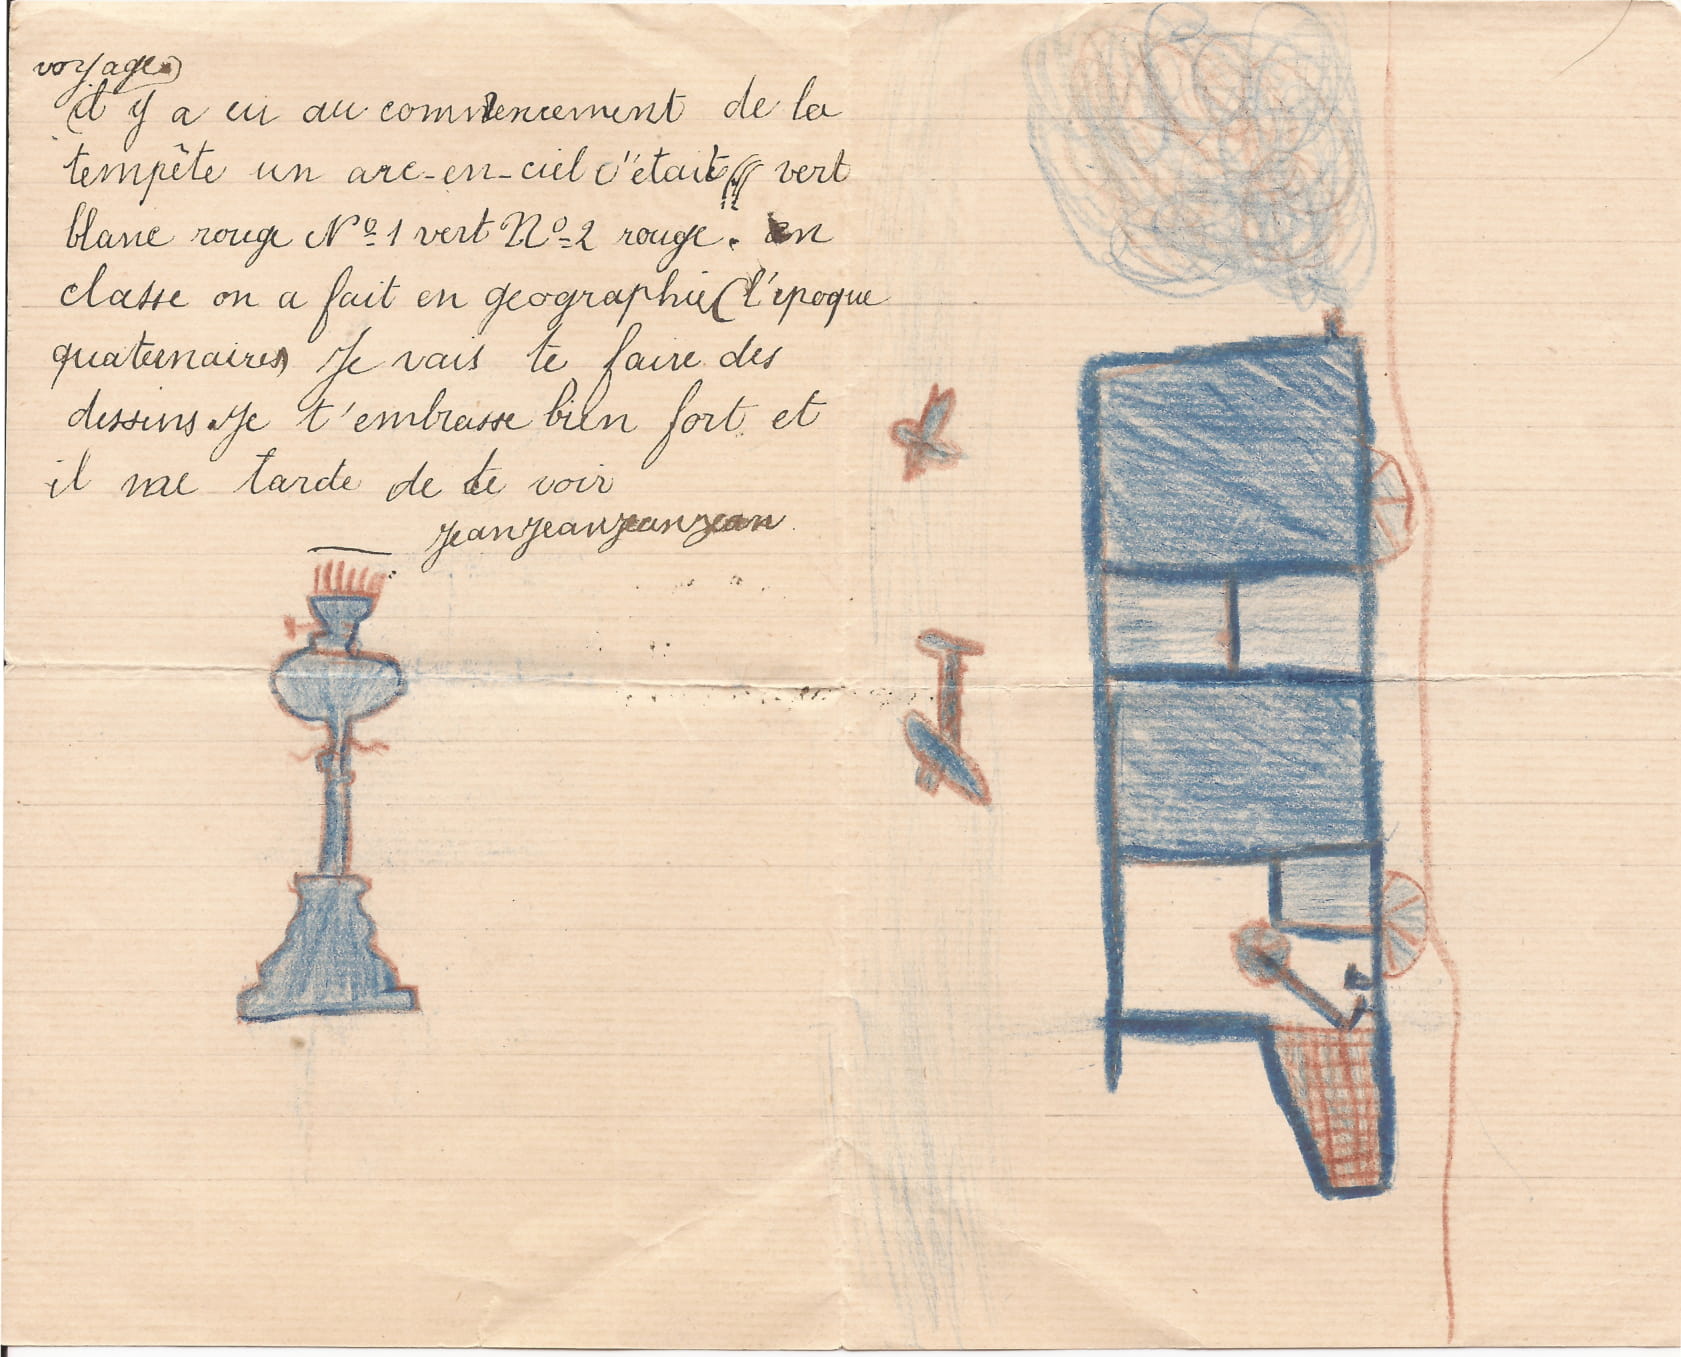 voyage)
il y a eu au commencement de la
tempête un arc-en-ciel c'était vert
blanc rouge Nº 1 vert Nº 2 rouge. en
classe on a fait en geographie (l'époque
quaternaires) Je vais te faire des
dessins. Je t'embrasse bien fort et
il me tarde de te voir
JeanJeanJeanJean